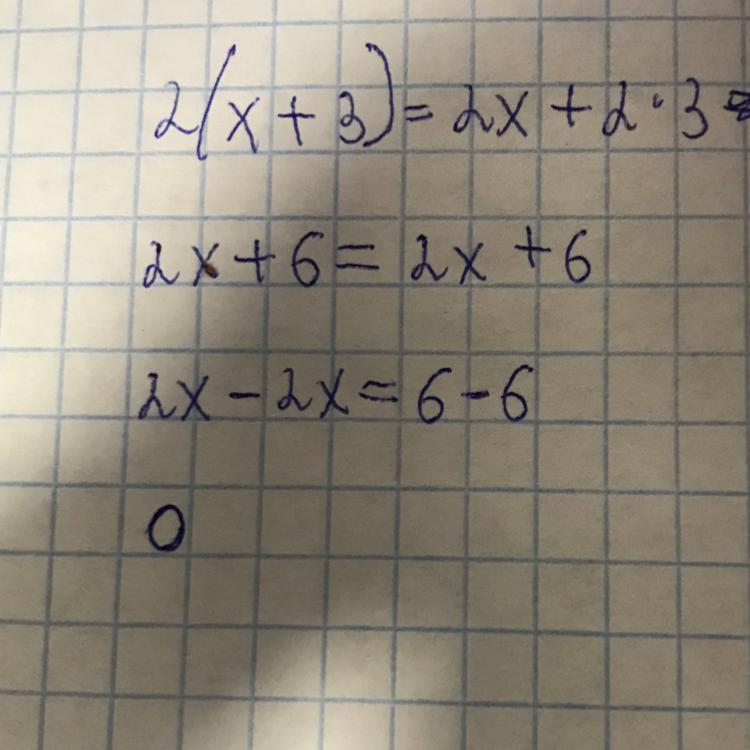 2(x + 3) = 2x + 2 · 3 =
2x + 6 = 2x + 6
2x - 2x = 6 - 6
0